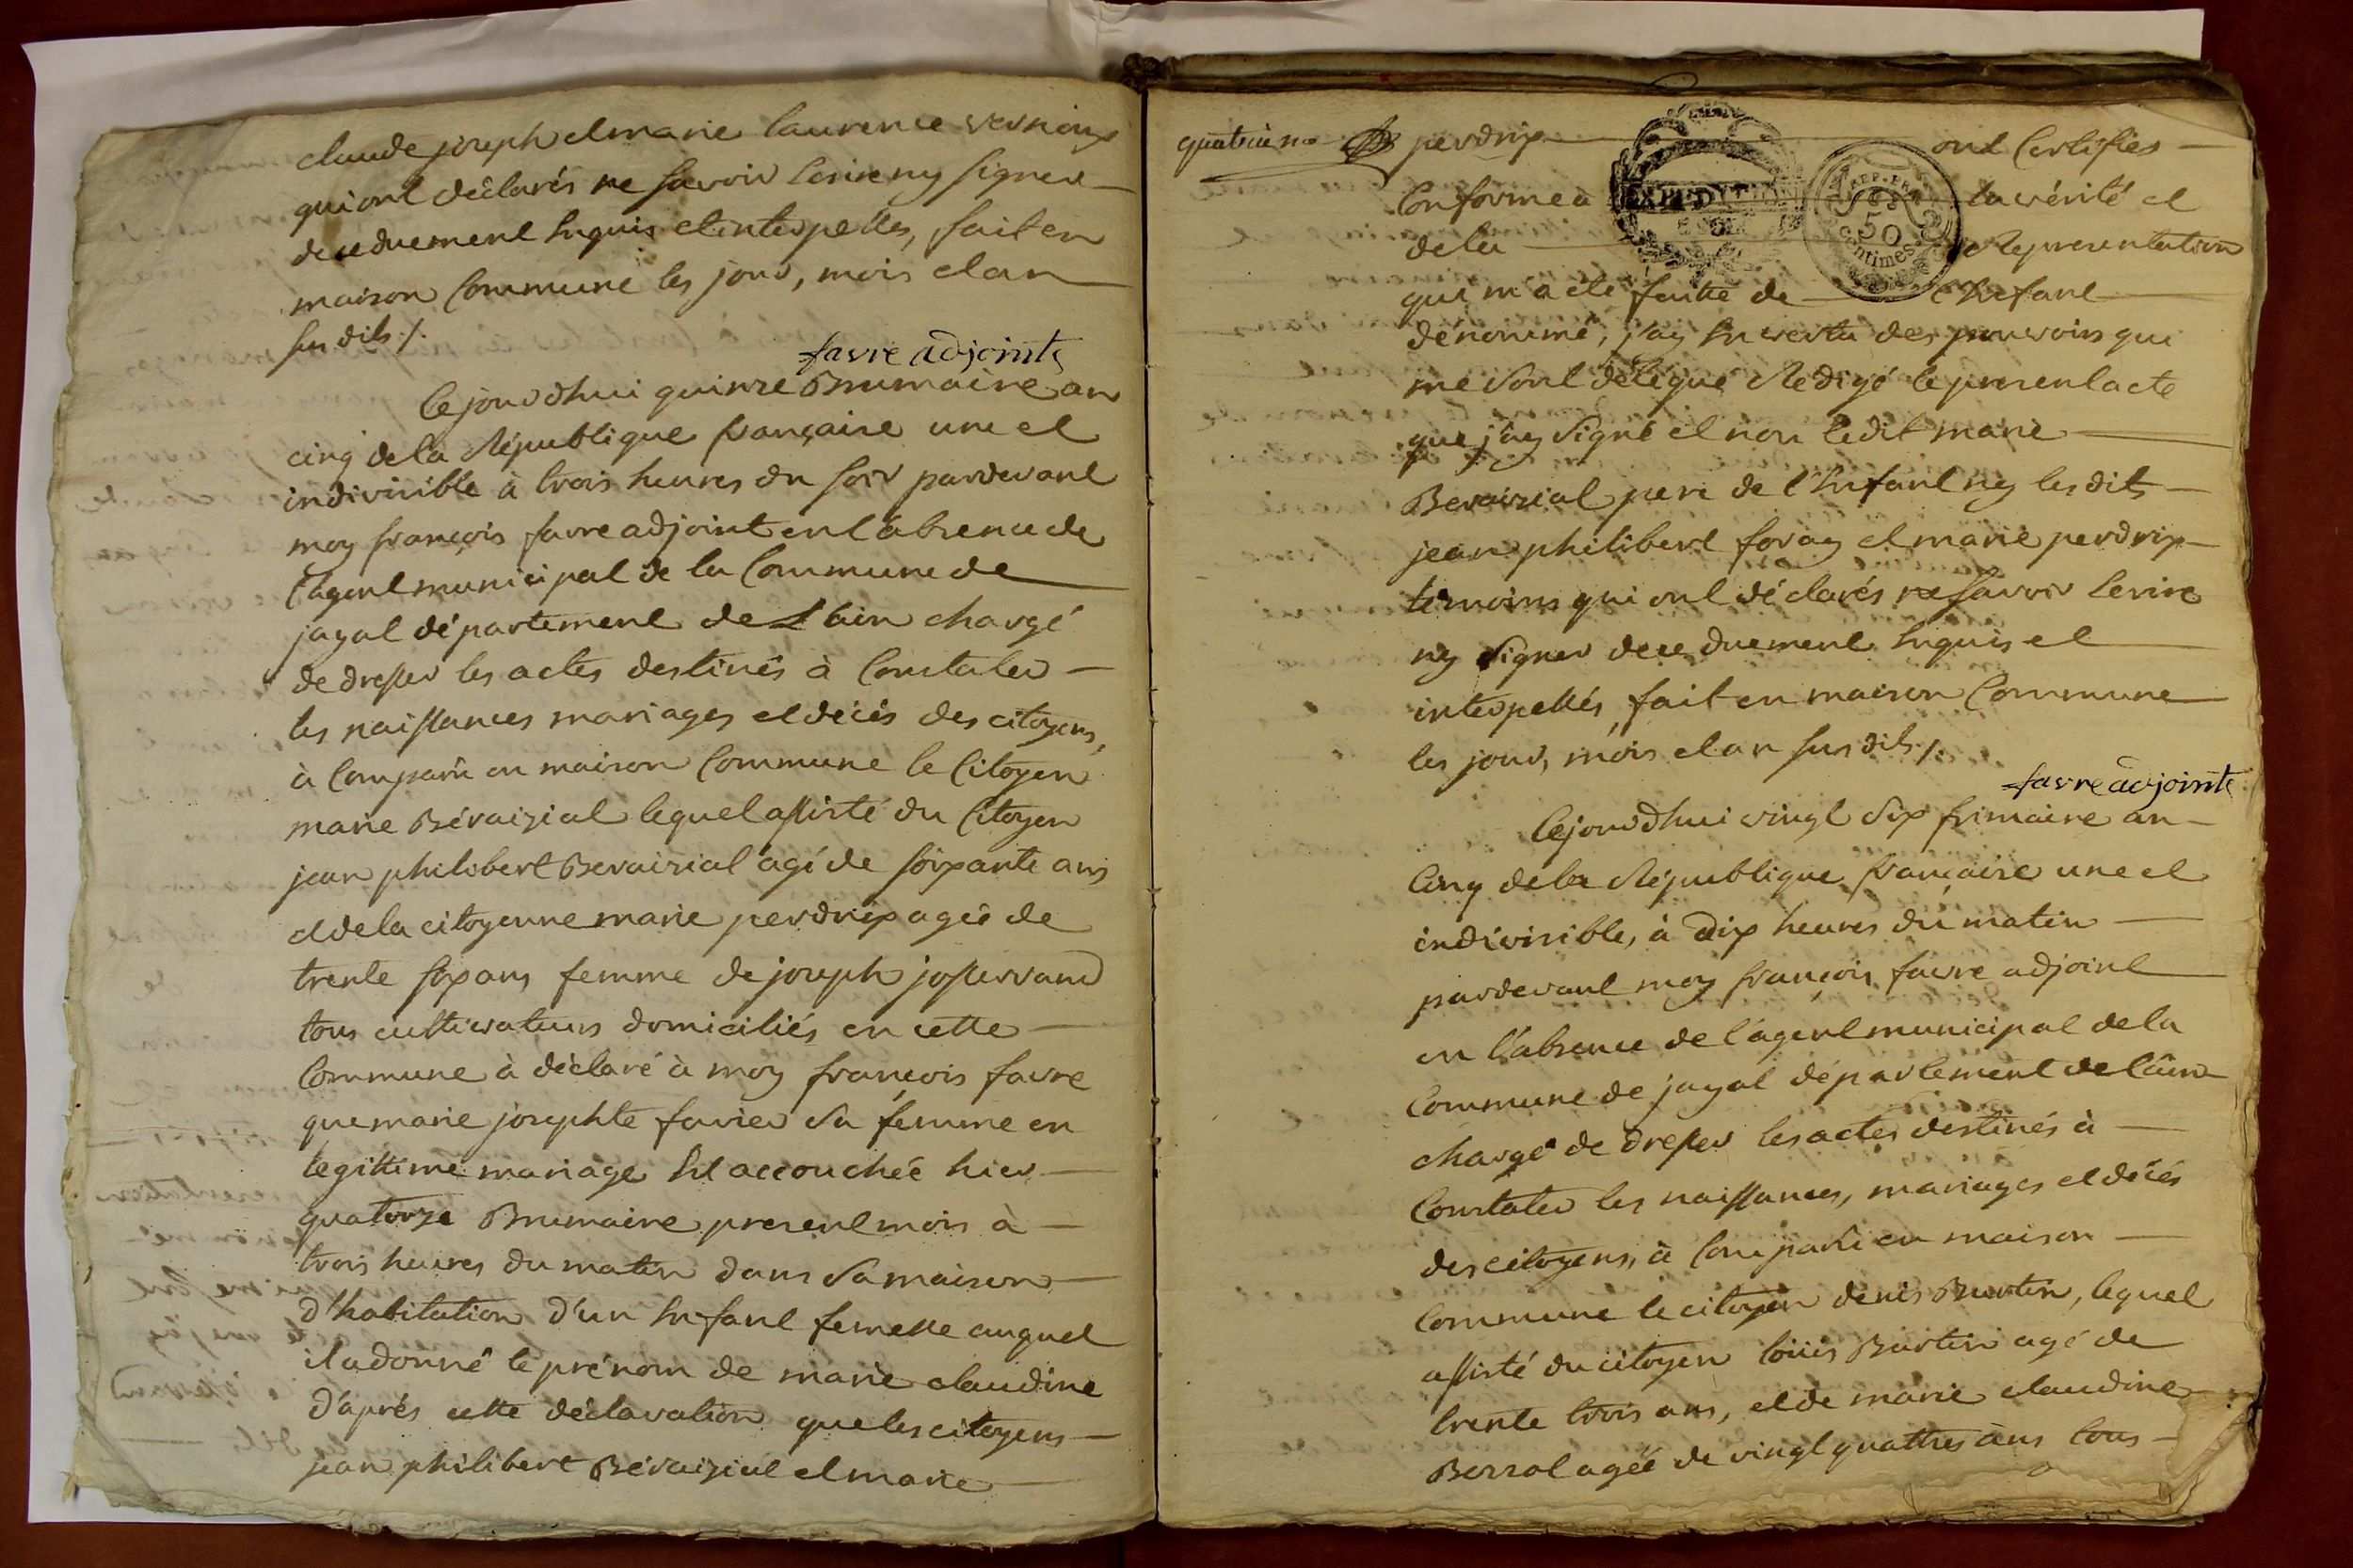 claude joseph et marie laurence vernoux
qui ont déclarés ne savoir Ecrire ny signer
de ce duement Enquis et interpellés, fait en
maison Commune les jour, mois et an
sus dits ./.
favre adjointe
Cejourdhui quinze Brumaire an
cinq de la République française une et
indivisible à trois heures du soir pardevant
moy françois favre adjoint en l'absence de
l'agent municipal de la Commune de
jayat département de l'ain chargé
de dresser les actes destinés à Constater
les naissances mariages et décès des citoyens,
à Comparu en maison Commune le Citoyen
marie Bévaizial lequel assisté du Citoyen
jean philibert Bevaizial agé de soixante ans
et de la citoyenne marie perdrix agée de
trente six ans femme de joseph josserand
tous cultivateurs domiciliés en cette
Commune à déclaré à moy françois favre
que marie josephte favier sa femme en
legittime mariage Est accouchée hier
quatorze Brumaire present mois à
trois heures du matin dans sa maison
d'habitation d'un Enfant femelle auquel
il a donné le prénom de marie claudine
d'après cette déclaration que les citoyens
jean philibert Bévaizial et marie
quatrieme perdrix ont Certifiés
Conforme à EXPEDITION REP. FRA. la vérité et
de la 50 centimes Representation
qui m'a été faitte de l'Enfant
dénommé, j'ay En vertu des pouvoirs qui
me sont délégué Redigé le present acte
que j'ay signé et non ledit marie
Bevaizial pere de l'Enfant ny lesdits
jean philibert foray et marie perdrix
témoins qui ont déclarés ne savoir Ecrire
ny signer de ce duement Enquis et
interpellés, fait en maison Commune
les jour, mois et an sus dits ./.
favre adjointe
Cejourdhui vingt six frimaire an
Cinq de la République française une et
indivisible, à dix heures du matin
pardevant moy françois favre adjoint
en l'absence de l'agent municipal de la
Commune de jayat département de l'ain
chargé de dresser les actes destinés à
Constater les naissances, mariages et décès
des citoyens, à Comparu en maison
Commune le citoyen denis Burtin, lequel
assisté du citoyen louis Burtin agé de
trente trois ans, et de marie claudine
Berrod agée de vingt quattres ans tous